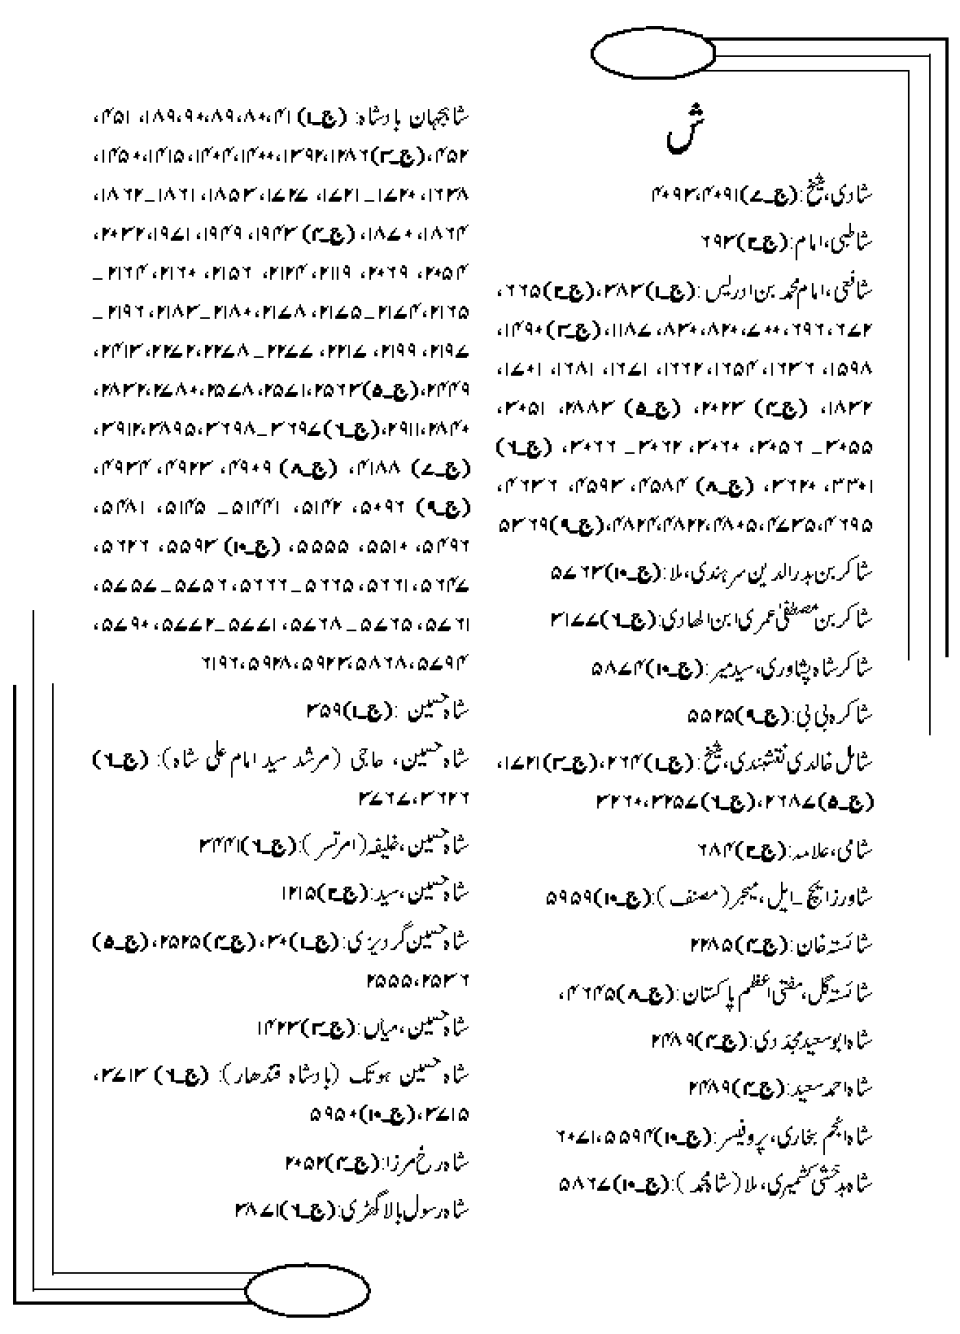 ش
شادی، شیخ: (ج۔۷)۴۰۹۳،۴۰۹۱
شاطبی، امام: (ج۔۲)۶۹۳
شافعی، امام محمد بن ادریس: (ج۔۱)۳۸۳، (ج۔۲)۶۶۵،
۶۷۲، ۶۹۶، ۷۰۰، ۸۲۰، ۸۳۰، ۱۱۸۷، (ج۔۳)۱۴۹۰،
۱۵۹۸، ۱۶۳۶، ۱۶۵۴، ۱۶۶۲، ۱۶۷۱، ۱۶۸۱، ۱۷۰۱،
۱۸۳۲، (ج۔۴) ۲۰۲۳، (ج۔۵) ۲۸۸۳، ۳۰۵۱،
۳۰۵۵ ۔ ۳۰۵۶، ۳۰۶۰، ۳۰۶۲ ۔ ۳۰۶۶، (ج۔۶)
۳۳۰۱، ۳۶۲۰، (ج۔۸) ۴۵۸۴، ۴۵۹۳، ۴۶۳۶،
۴۶۹۵، ۴۷۳۵، ۴۸۰۵، ۴۸۲۲، ۴۸۲۴، (ج۔۹)۵۳۶۹
شاکر بن بدر الدین سرہندی، ملا: (ج۔۱۰)۵۷۶۳
شاکر بن مصطفیٰ عمری ابن الھادی: (ج۔۶)۳۱۷۷
شاکر شاہ پشاوری، سید میر: (ج۔۱۰)۵۸۷۴
شاکرہ بی بی: (ج۔۹)۵۵۲۵
شامل خالدی نقشبندی، شیخ: (ج۔۱)۲۶۴، (ج۔۳)۱۷۲۱،
(ج۔۵)۲۶۸۷، (ج۔۶)۳۲۵۷، ۳۲۶۰
شامی، علامہ: (ج۔۲)۶۸۴
شاورزایچ ۔ ایل، میجر (مصنف): (ج۔۱۰)۵۹۵۹
شائستہ خان: (ج۔۴)۲۲۸۵
شائستہ گل، مفتی اعظم پاکستان: (ج۔۸)۴۶۴۵،
شاہ ابو سعید مجددی: (ج۔۴)۲۴۸۹
شاہ احمد سعید: (ج۔۴)۲۴۸۹
شاہ انجم بخاری، پروفیسر: (ج۔۱۰)۵۵۹۴، ۶۰۷۱
شاہ بدخشی کشمیری، ملا (شاہ محمد): (ج۔۱۰)۵۸۶۷
شاہجہان بادشاہ: (ج۔۱)۴۱، ۸۰، ۸۹، ۹۰، ۱۸۹، ۴۵۱،
۴۵۲، (ج۔۳)۱۲۸۶، ۱۳۹۲، ۱۴۰۰، ۱۴۰۴، ۱۴۱۵، ۱۴۵۰،
۱۶۳۸، ۱۷۲۰ ۔ ۱۷۲۱، ۱۷۲۷، ۱۸۵۳، ۱۸۶۱ ۔ ۱۸۶۲،
۱۸۶۴، ۱۸۷۰، (ج۔۴) ۱۹۴۳، ۱۹۴۹، ۱۹۷۱، ۲۰۳۲،
۲۰۵۴، ۲۰۶۹، ۲۱۱۹، ۲۱۲۴، ۲۱۵۶، ۲۱۶۰، ۲۱۶۴ ۔
۲۱۶۵، ۲۱۷۴ ۔ ۲۱۷۵، ۲۱۷۸، ۲۱۸۰ ۔ ۲۱۸۳، ۲۱۹۶ ۔
۲۱۹۷، ۲۱۹۹، ۲۲۱۷، ۲۲۷۷ ۔ ۲۲۷۸، ۲۲۷۲، ۲۴۱۳،
۲۴۴۹، (ج۔۵)۲۵۶۳، ۲۵۷۱، ۲۵۷۸، ۲۷۸۰، ۲۸۳۲،
۲۸۴۰، ۲۹۱۱، (ج۔۶)۳۶۹۷ ۔ ۳۶۹۸، ۳۸۹۵، ۳۹۱۲،
(ج۔۷) ۴۱۸۸، (ج۔۸) ۴۹۰۹، ۴۹۲۳، ۴۹۳۴،
(ج۔۹) ۵۰۹۶، ۵۱۴۲، ۵۱۴۴۱ ۔ ۵۱۴۵، ۵۴۸۱،
۵۴۹۶، ۵۵۱۰، ۵۵۵۵، (ج۔۱۰) ۵۵۹۳، ۵۶۲۶،
۵۶۴۷، ۵۶۶۱، ۵۶۶۵ ۔ ۵۶۶۶، ۵۷۵۶ ۔ ۵۷۵۷،
۵۷۶۱، ۵۷۶۵ ۔ ۵۷۶۸، ۵۷۷۱ ۔ ۵۷۷۲، ۵۷۹۰،
۵۷۹۴، ۵۸۶۸، ۵۹۲۳، ۵۹۲۸، ۶۱۹۶
شاہ حسین: (ج۔۱)۳۵۹
شاہ حسین، حاجی (مرشد سید امام علی شاہ): (ج۔۶)
۳۶۲۶، ۳۷۶۷
شاہ حسین، خلیفہ (امرتسر): (ج۔۶)۳۴۴۱
شاہ حسین، سید: (ج۔۲)۱۲۱۵
شاہ حسین گردیزی: (ج۔۱)۳۰، (ج۔۴)۲۵۲۵، (ج۔۵)
۲۵۳۶، ۲۵۵۵
شاہ حسین، میاں: (ج۔۳)۱۴۲۳
شاہ حسین ہوتک (بادشاہ قندھار): (ج۔۶) ۳۷۱۳،
۳۷۱۵، (ج۔۱۰)۵۹۵۰
شاہ رخ مرزا: (ج۔۴)۲۰۵۲
شاہ رسول بالا گھڑی: (ج۔۶)۳۸۷۱